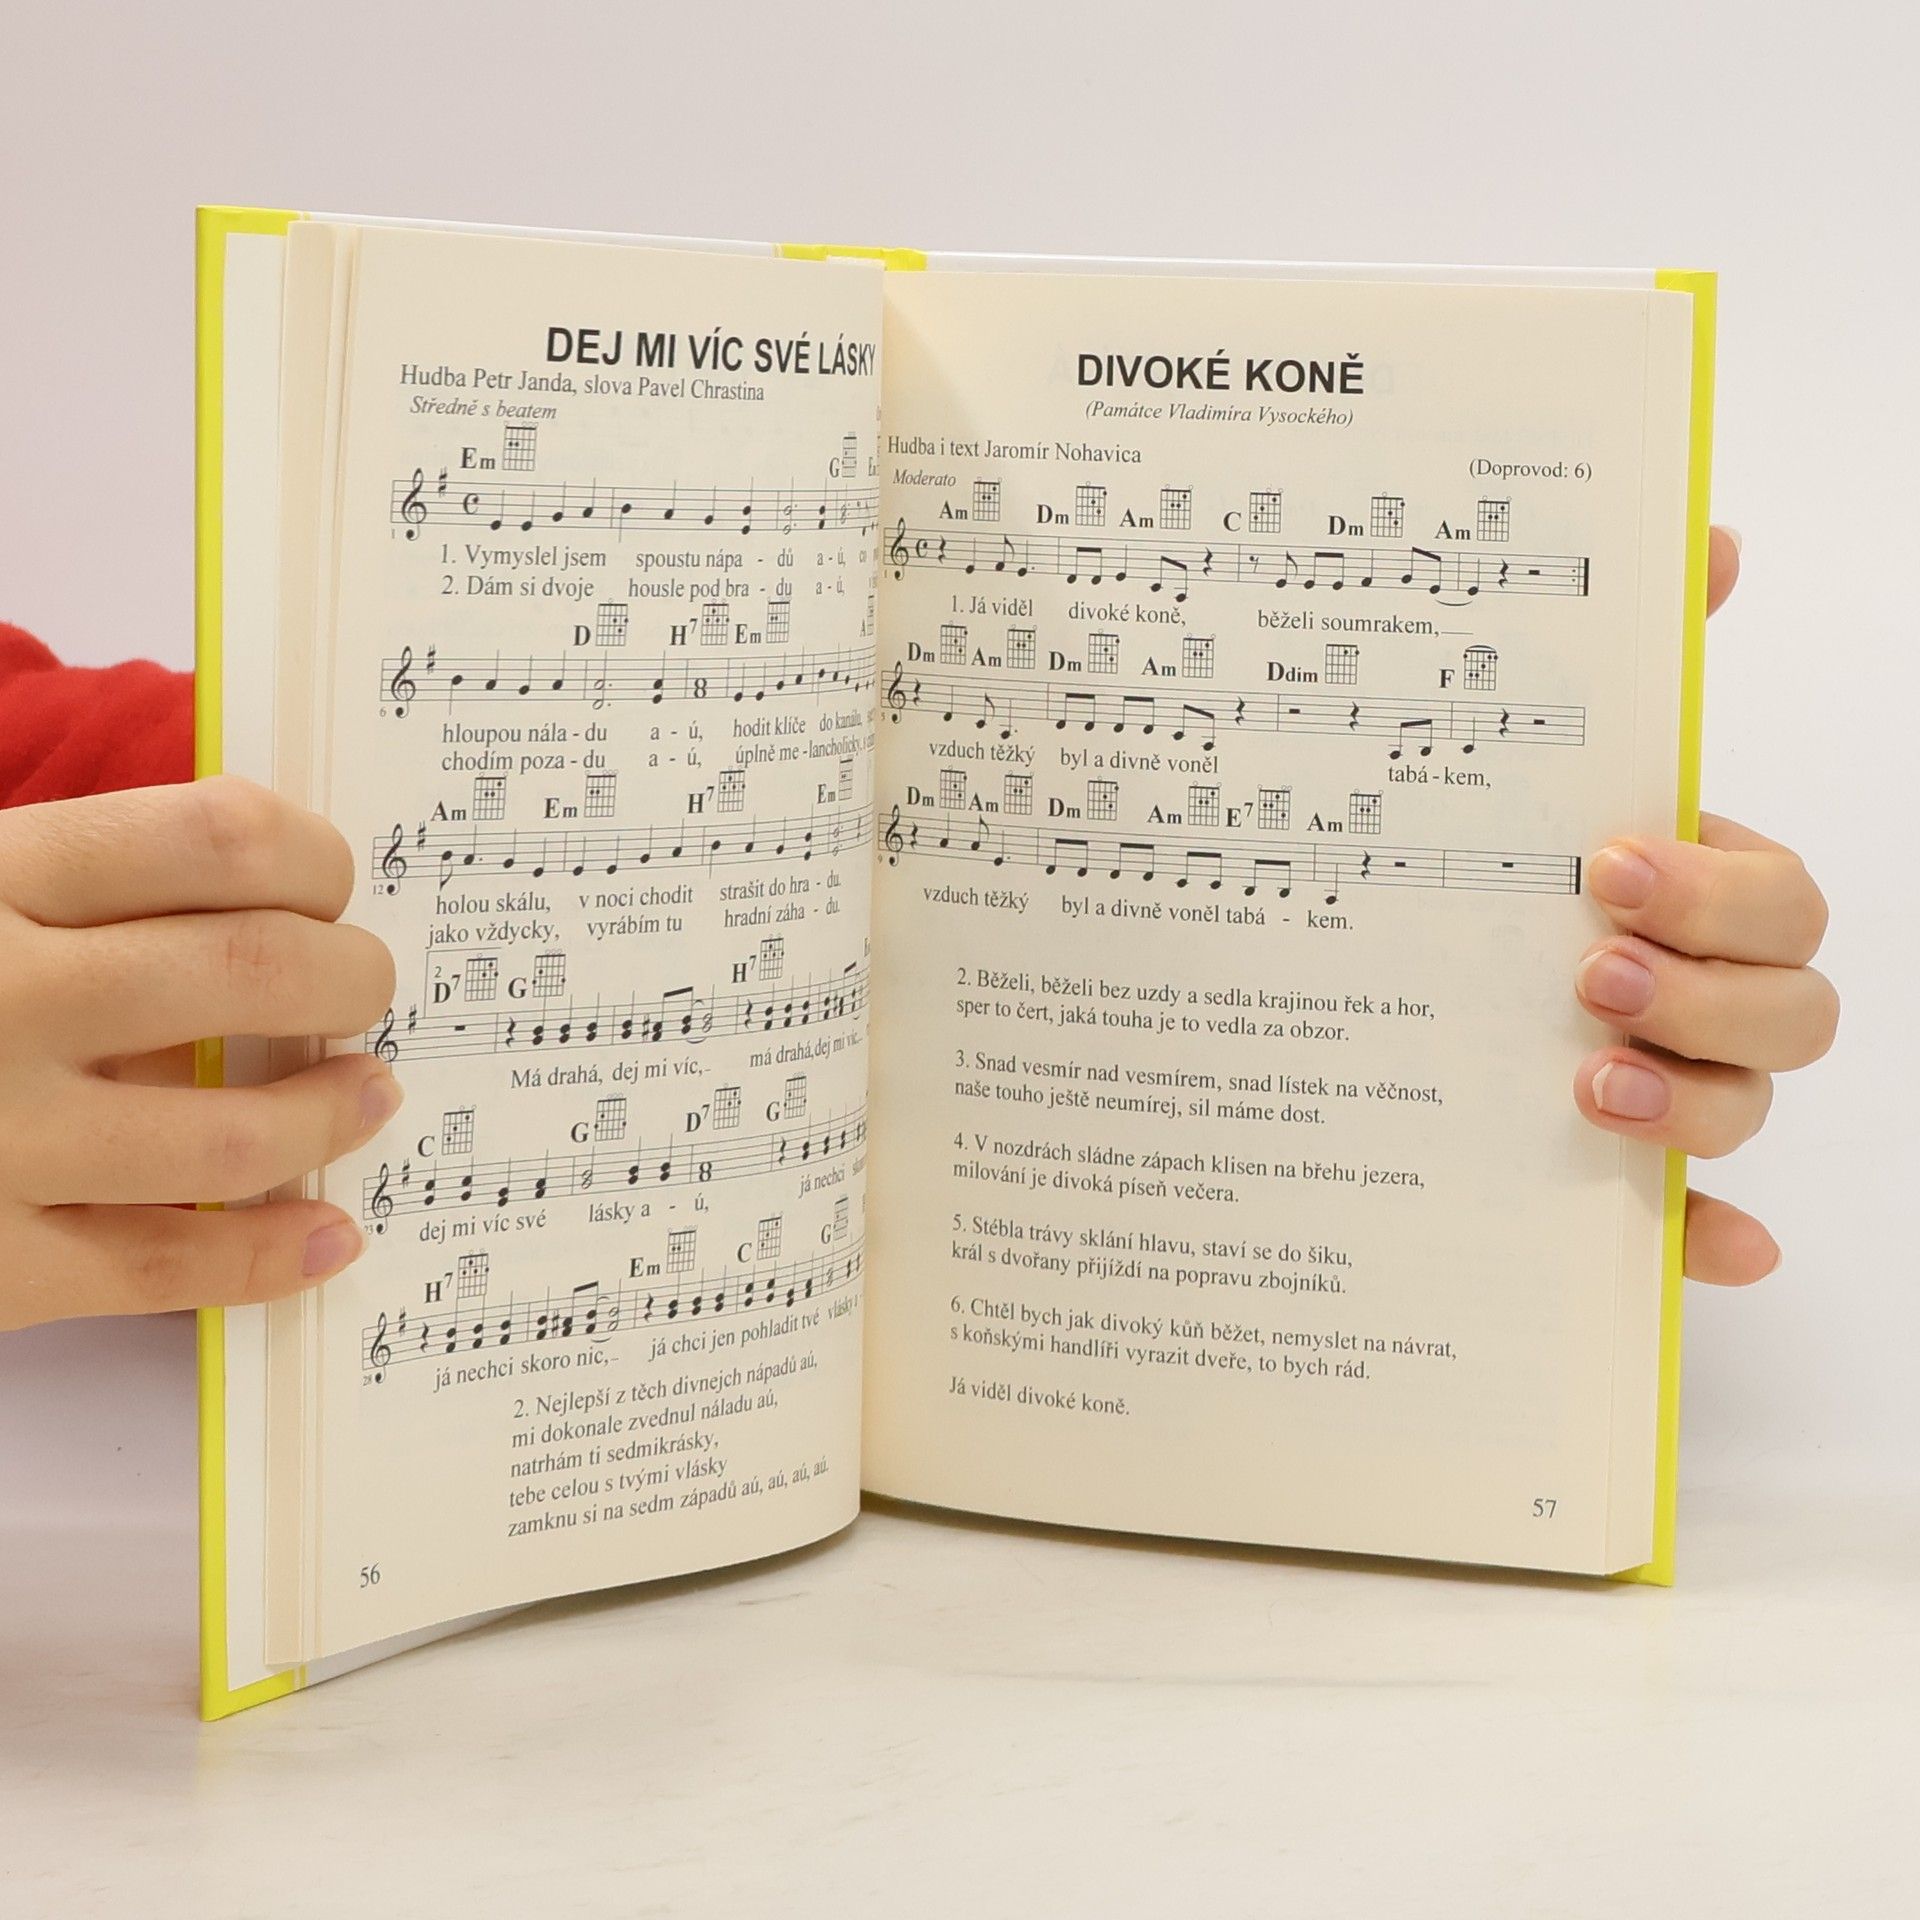 DEJ MI VÍC SVÉ LÁSKY
Hudba Petr Janda, slova Pavel Chrastina
Středně s beatem
Em G
1
1. Vymyslel jsem spoustu nápa - dů a - ú,
2. Dám si dvoje housle pod bra - du a - ú,
D H7 Em A
6
hloupou nála - du a - ú, hodit klíče do kanálu,
chodím poza - du a - ú, úplně me - lancholicky,
Am Em H7 Em
12
holou skálu, v noci chodit strašit do hra - du.
jako vždycky, vyrábím tu hradní záha - du.
2
D7 G H7
Má drahá, dej mi víc, má drahá, dej mi víc
C G D7 G
dej mi víc své lásky a - ú, já nechci
H7 Em C G
28
já nechci skoro nic, já chci jen pohladit tvé vlásky
2. Nejlepší z těch divnejch nápadů aú,
mi dokonale zvednul náladu aú,
natrhám ti sedmikrásky,
tebe celou s tvými vlásky
zamknu si na sedm západů aú, aú, aú, aú.
56
DIVOKÉ KONĚ
(Památce Vladimíra Vysockého)
Hudba i text Jaromír Nohavica
(Doprovod: 6)
Moderato
Am Dm Am C Dm Am
1
1. Já viděl divoké koně, běželi soumrakem,
Dm Am Dm Am Ddim F
5
vzduch těžký byl a divně voněl tabá - kem,
Dm Am Dm Am E7 Am
9
vzduch těžký byl a divně voněl tabá - kem.
2. Běželi, běželi bez uzdy a sedla krajinou řek a hor,
sper to čert, jaká touha je to vedla za obzor.
3. Snad vesmír nad vesmírem, snad lístek na věčnost,
naše touho ještě neumírej, sil máme dost.
4. V nozdrách sládne zápach klisen na břehu jezera,
milování je divoká píseň večera.
5. Stébla trávy sklání hlavu, staví se do šiku,
král s dvořany přijíždí na popravu zbojníků.
6. Chtěl bych jak divoký kůň běžet, nemyslet na návrat,
s koňskými handlíři vyrazit dveře, to bych rád.
Já viděl divoké koně.
57